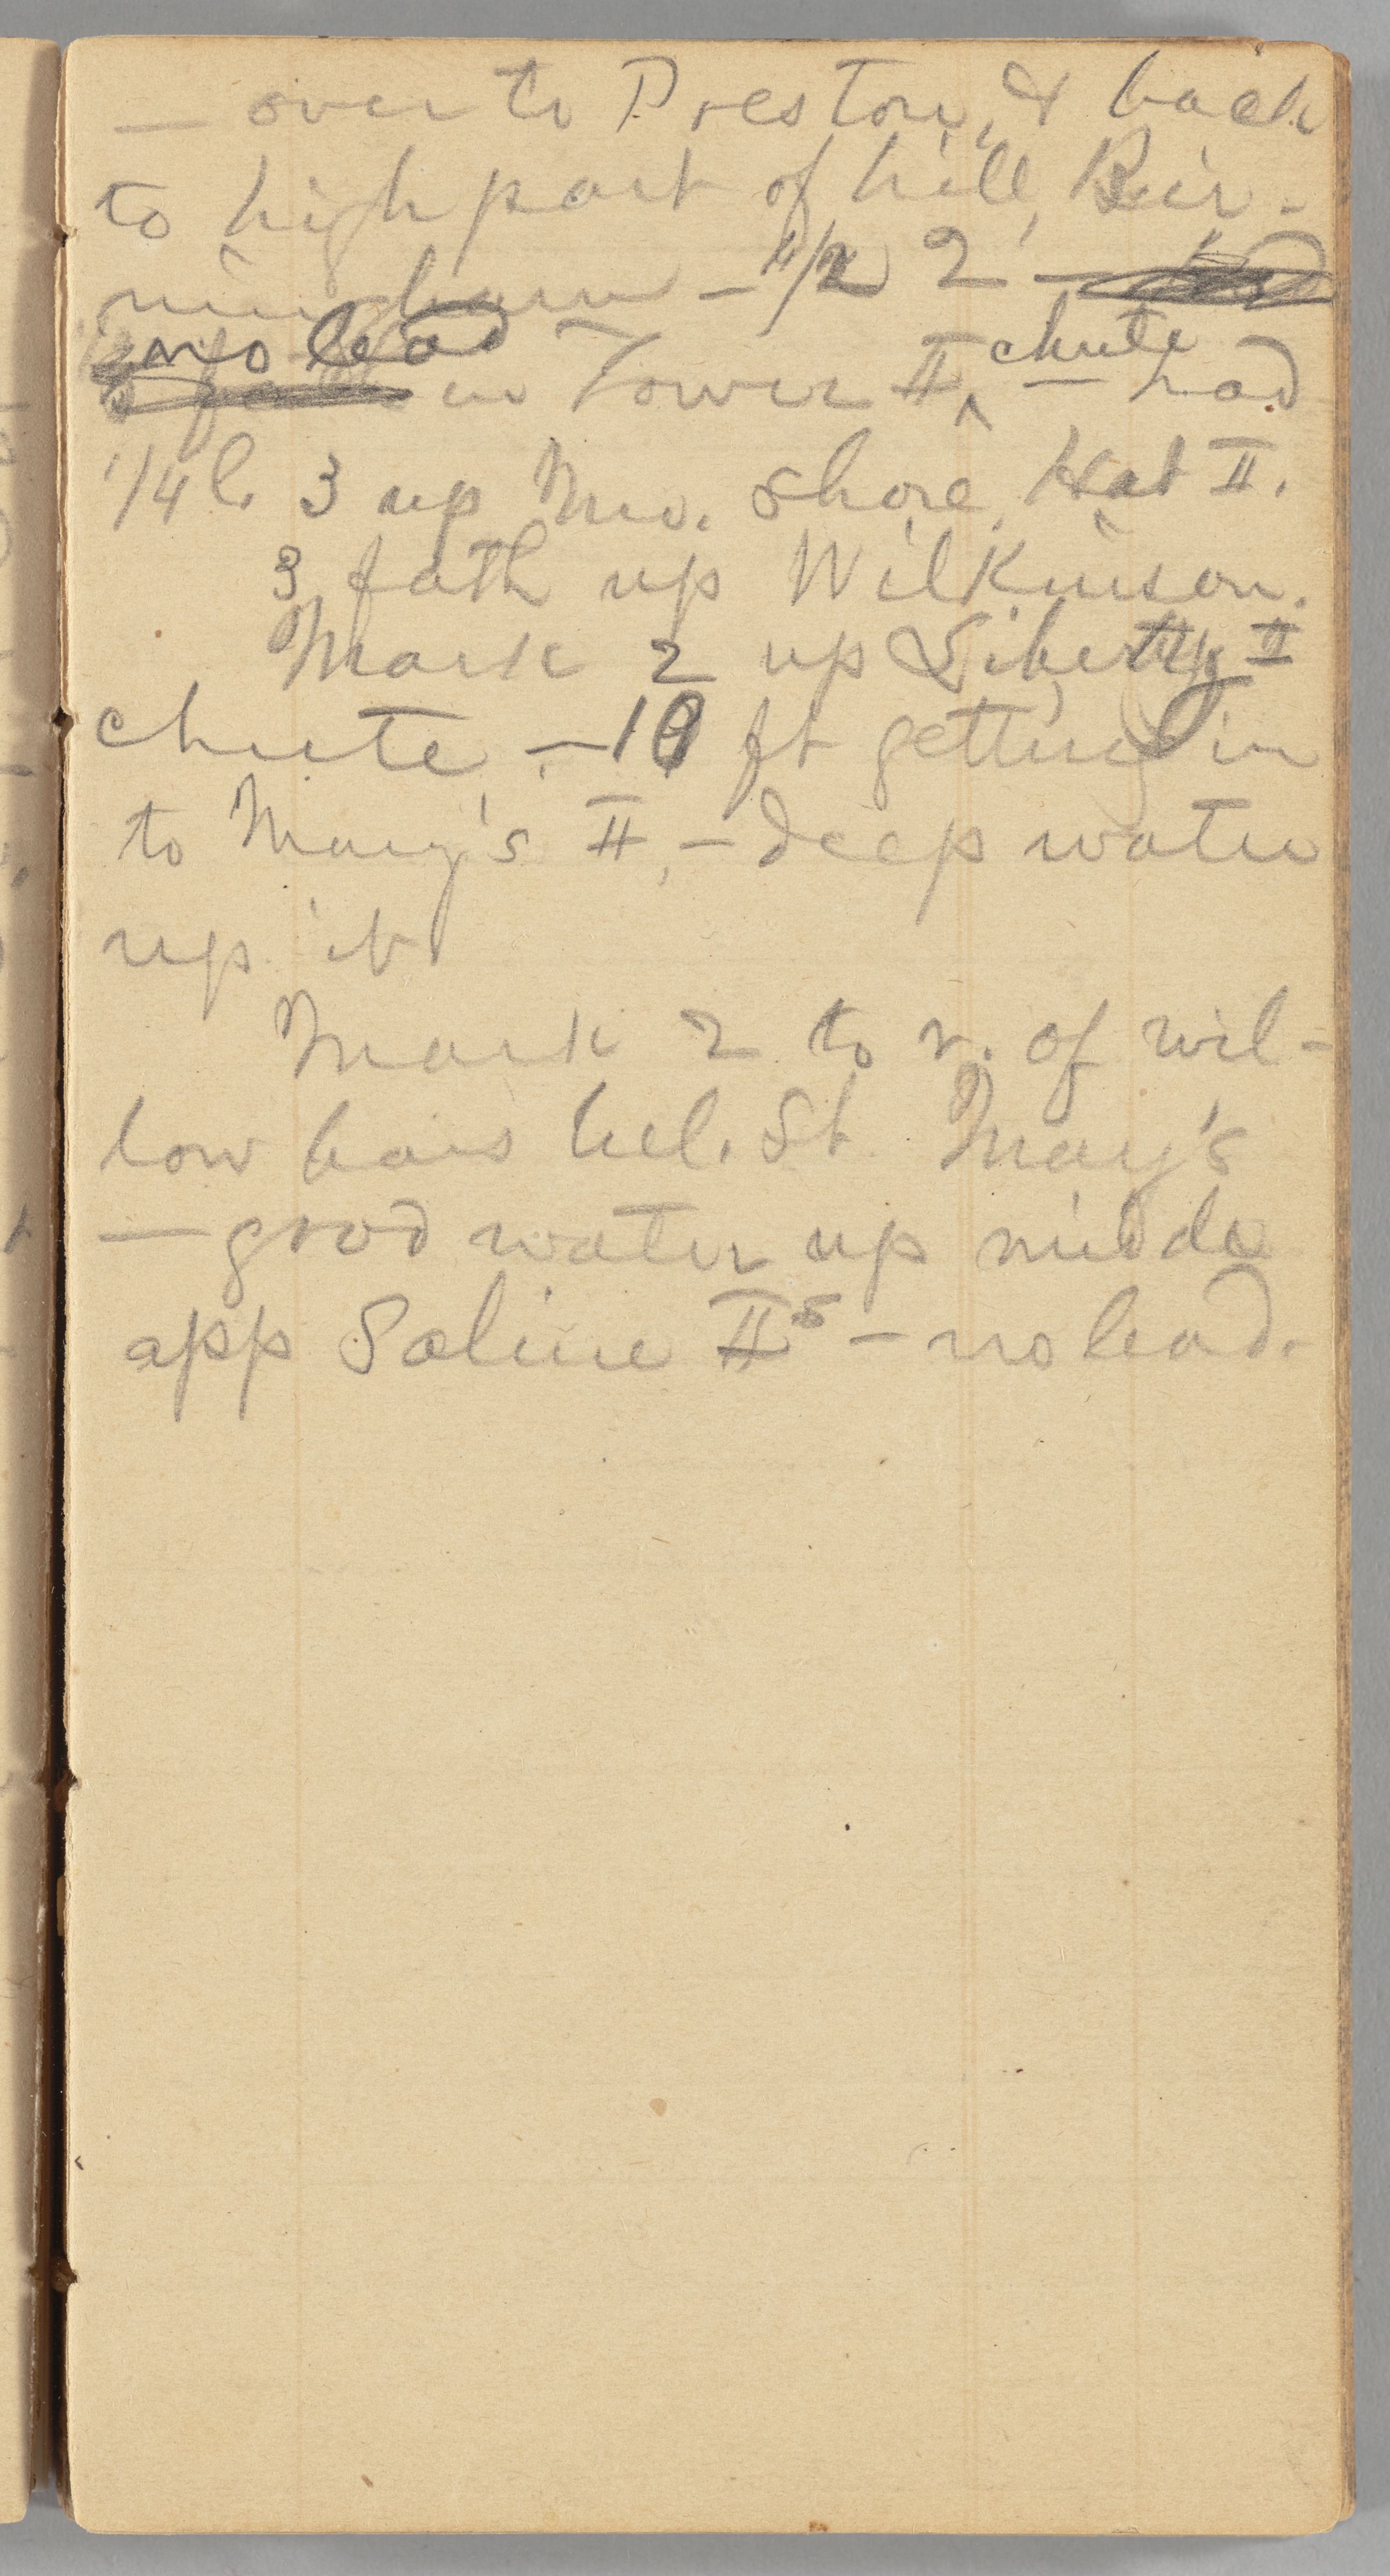 — over to Preston, & back
to high part of hill, Bir-
mingham – 1/2 2 –
no lead
in Tower II, chute — had
1/4 l. 3 up Mo. shore, Hat II.
3 fath up Wilkinson.
Mark 2 up Liberty II
chute – 10 ft getting in
to Mary's II, – deep water
up it
Mark 2 to r. of wil-
low bars bel. St. Mary's
— good water up middle
app Saline IIs – no lead.